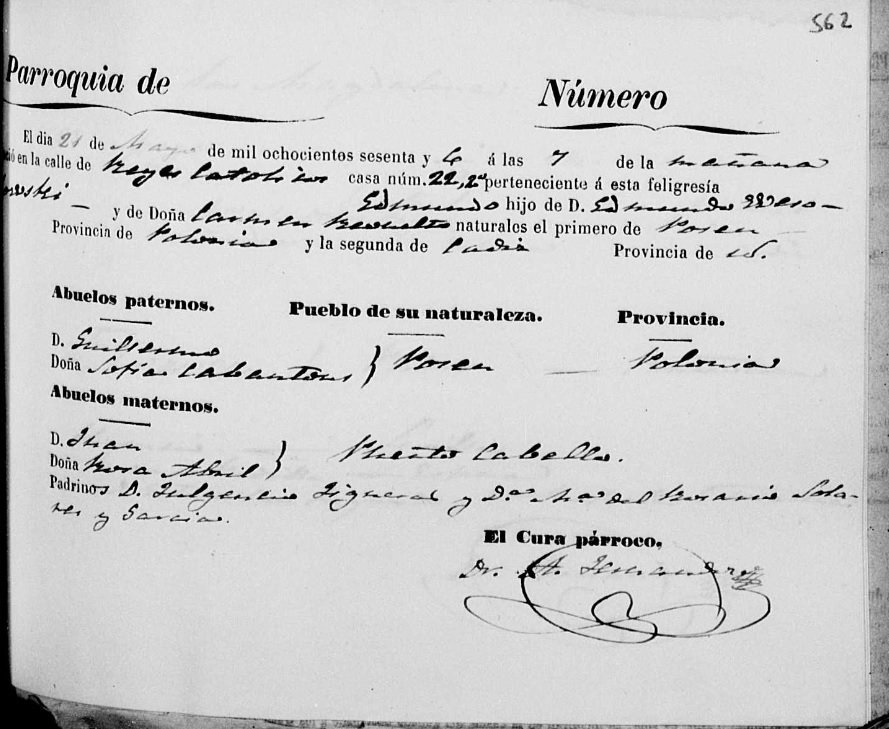 562
Parroquia de
Número
El dia 21 de Mayo de mil ochocientos sesenta y 6 á las 7 de la mañana
ció en la calle de Reyes Catolicos casa núm. 22, 2º perteneciente á esta feligresía
Edmundo hijo de D. Edmundo Wero-
y de Doña Carmen naturales el primero de Posen
Provincia de Polonia y la segunda de Cadiz Provincia de id.
Abuelos paternos. Pueblo de su naturaleza. Provincia.
D. Guillermo
Doña Sofia Cabantous } Posen — Polonia
Abuelos maternos.
D. Juan
Doña Rosa Abril } Puerto Cabello.
Padrinos D. Fulgencio Figueras y Dª Mª del Rosario Sola-
res y Garcia.
El Cura párroco,
Dr. A. Hernandez